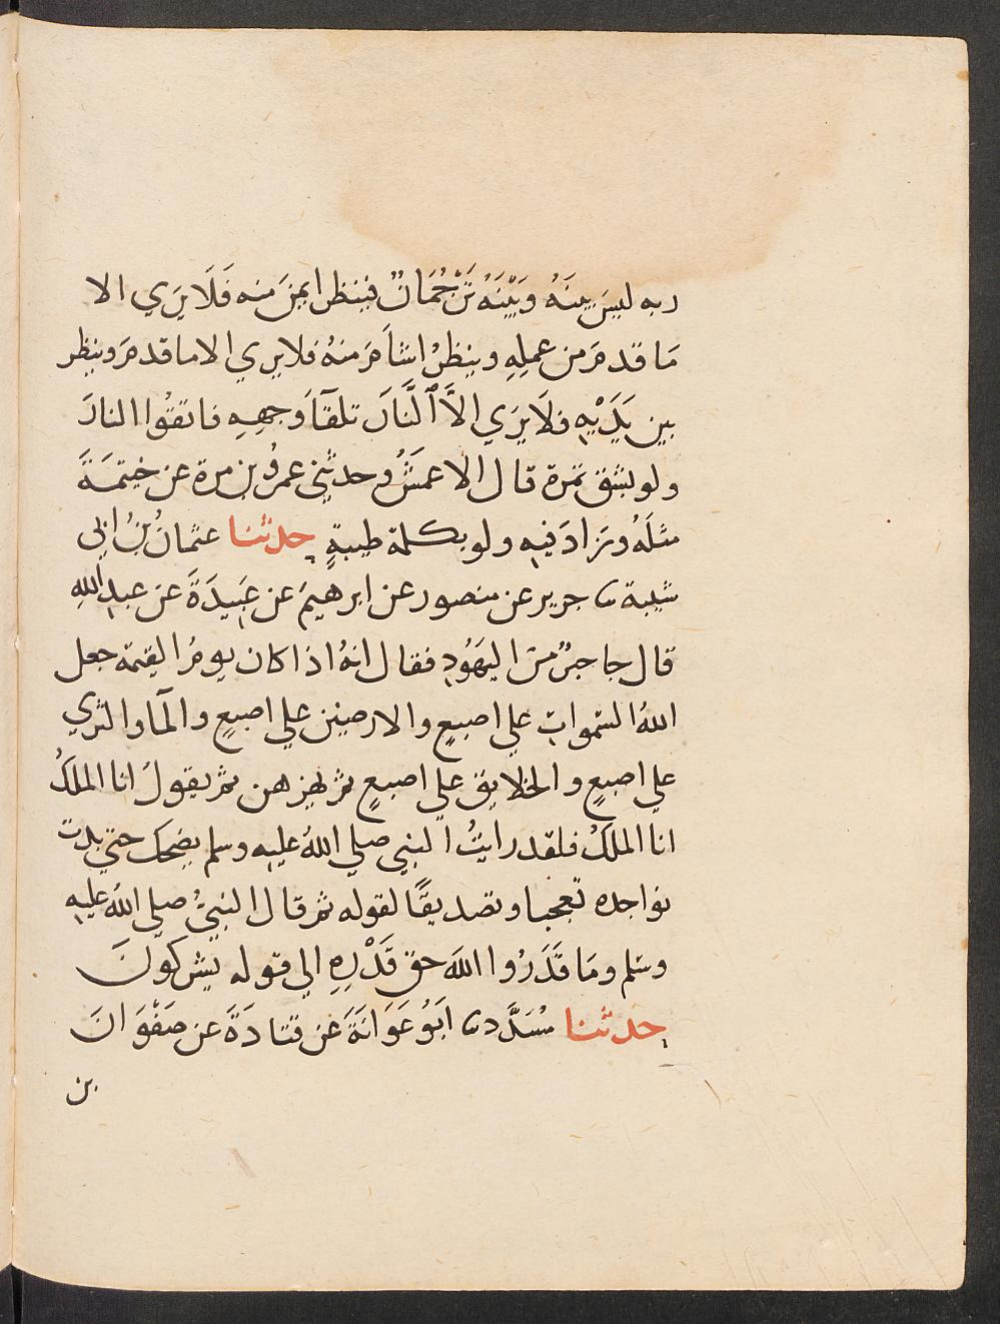 ربه ليسَ بينَهُ وَبَيْنَهُ تَرْجُمَانٌ فينظر ايمنَ منه فَلَا يَرَي الا
مَا قدمَ من عملِهِ وينظرُ اشأمَ منهُ فلا يري الا ما قدمَ وينظر
بين يَدَيْهِ فلَا يَرَي الَّا ٱلنَّارَ تلقآءَ وجهِهِ فاتقُوا النارَ
ولو بشق تمرة قال الاعمشُ وحدثني عمرُو بن مرة عن خيثمَةَ
مثلَهُ وزادَ فيهِ ولو بكلمة طيبةٍ حدثنا عثمانُ بنُ ابي
شيبة نا جرير عن منصور عن ابرهيمَ عن عَبِيدَةَ عن عبدِ اللهِ
قال جا حبرٌ منَ اليَهُودِ فقال انهُ اذا كان يومُ القيمة جعل
اللهُ السمواتِ علي اصبعٍ والارضينَ علي اصبعٍ والمآ والثري
علي اصبعٍ والخلايق علي اصبعٍ ثم يهزهن ثم يقولُ انا الملكُ
انا الملكُ فلقد رايتُ النبي صلي اللهُ عليهِ وسلم يضحك حتي بدت
نواجده تعجبا وتصديقًا لقوله ثم قال النبيُّ صلي اللهُ عليهِ
وسلم ومَا قَدَرُوا اللهَ حق قَدْرِهِ الي قوله يشركونَ
حدثنا مُسَدَّد نا ابَوُ عَوَانَةَ عَن قتادَةَ عن صَفْوَانَ
بن